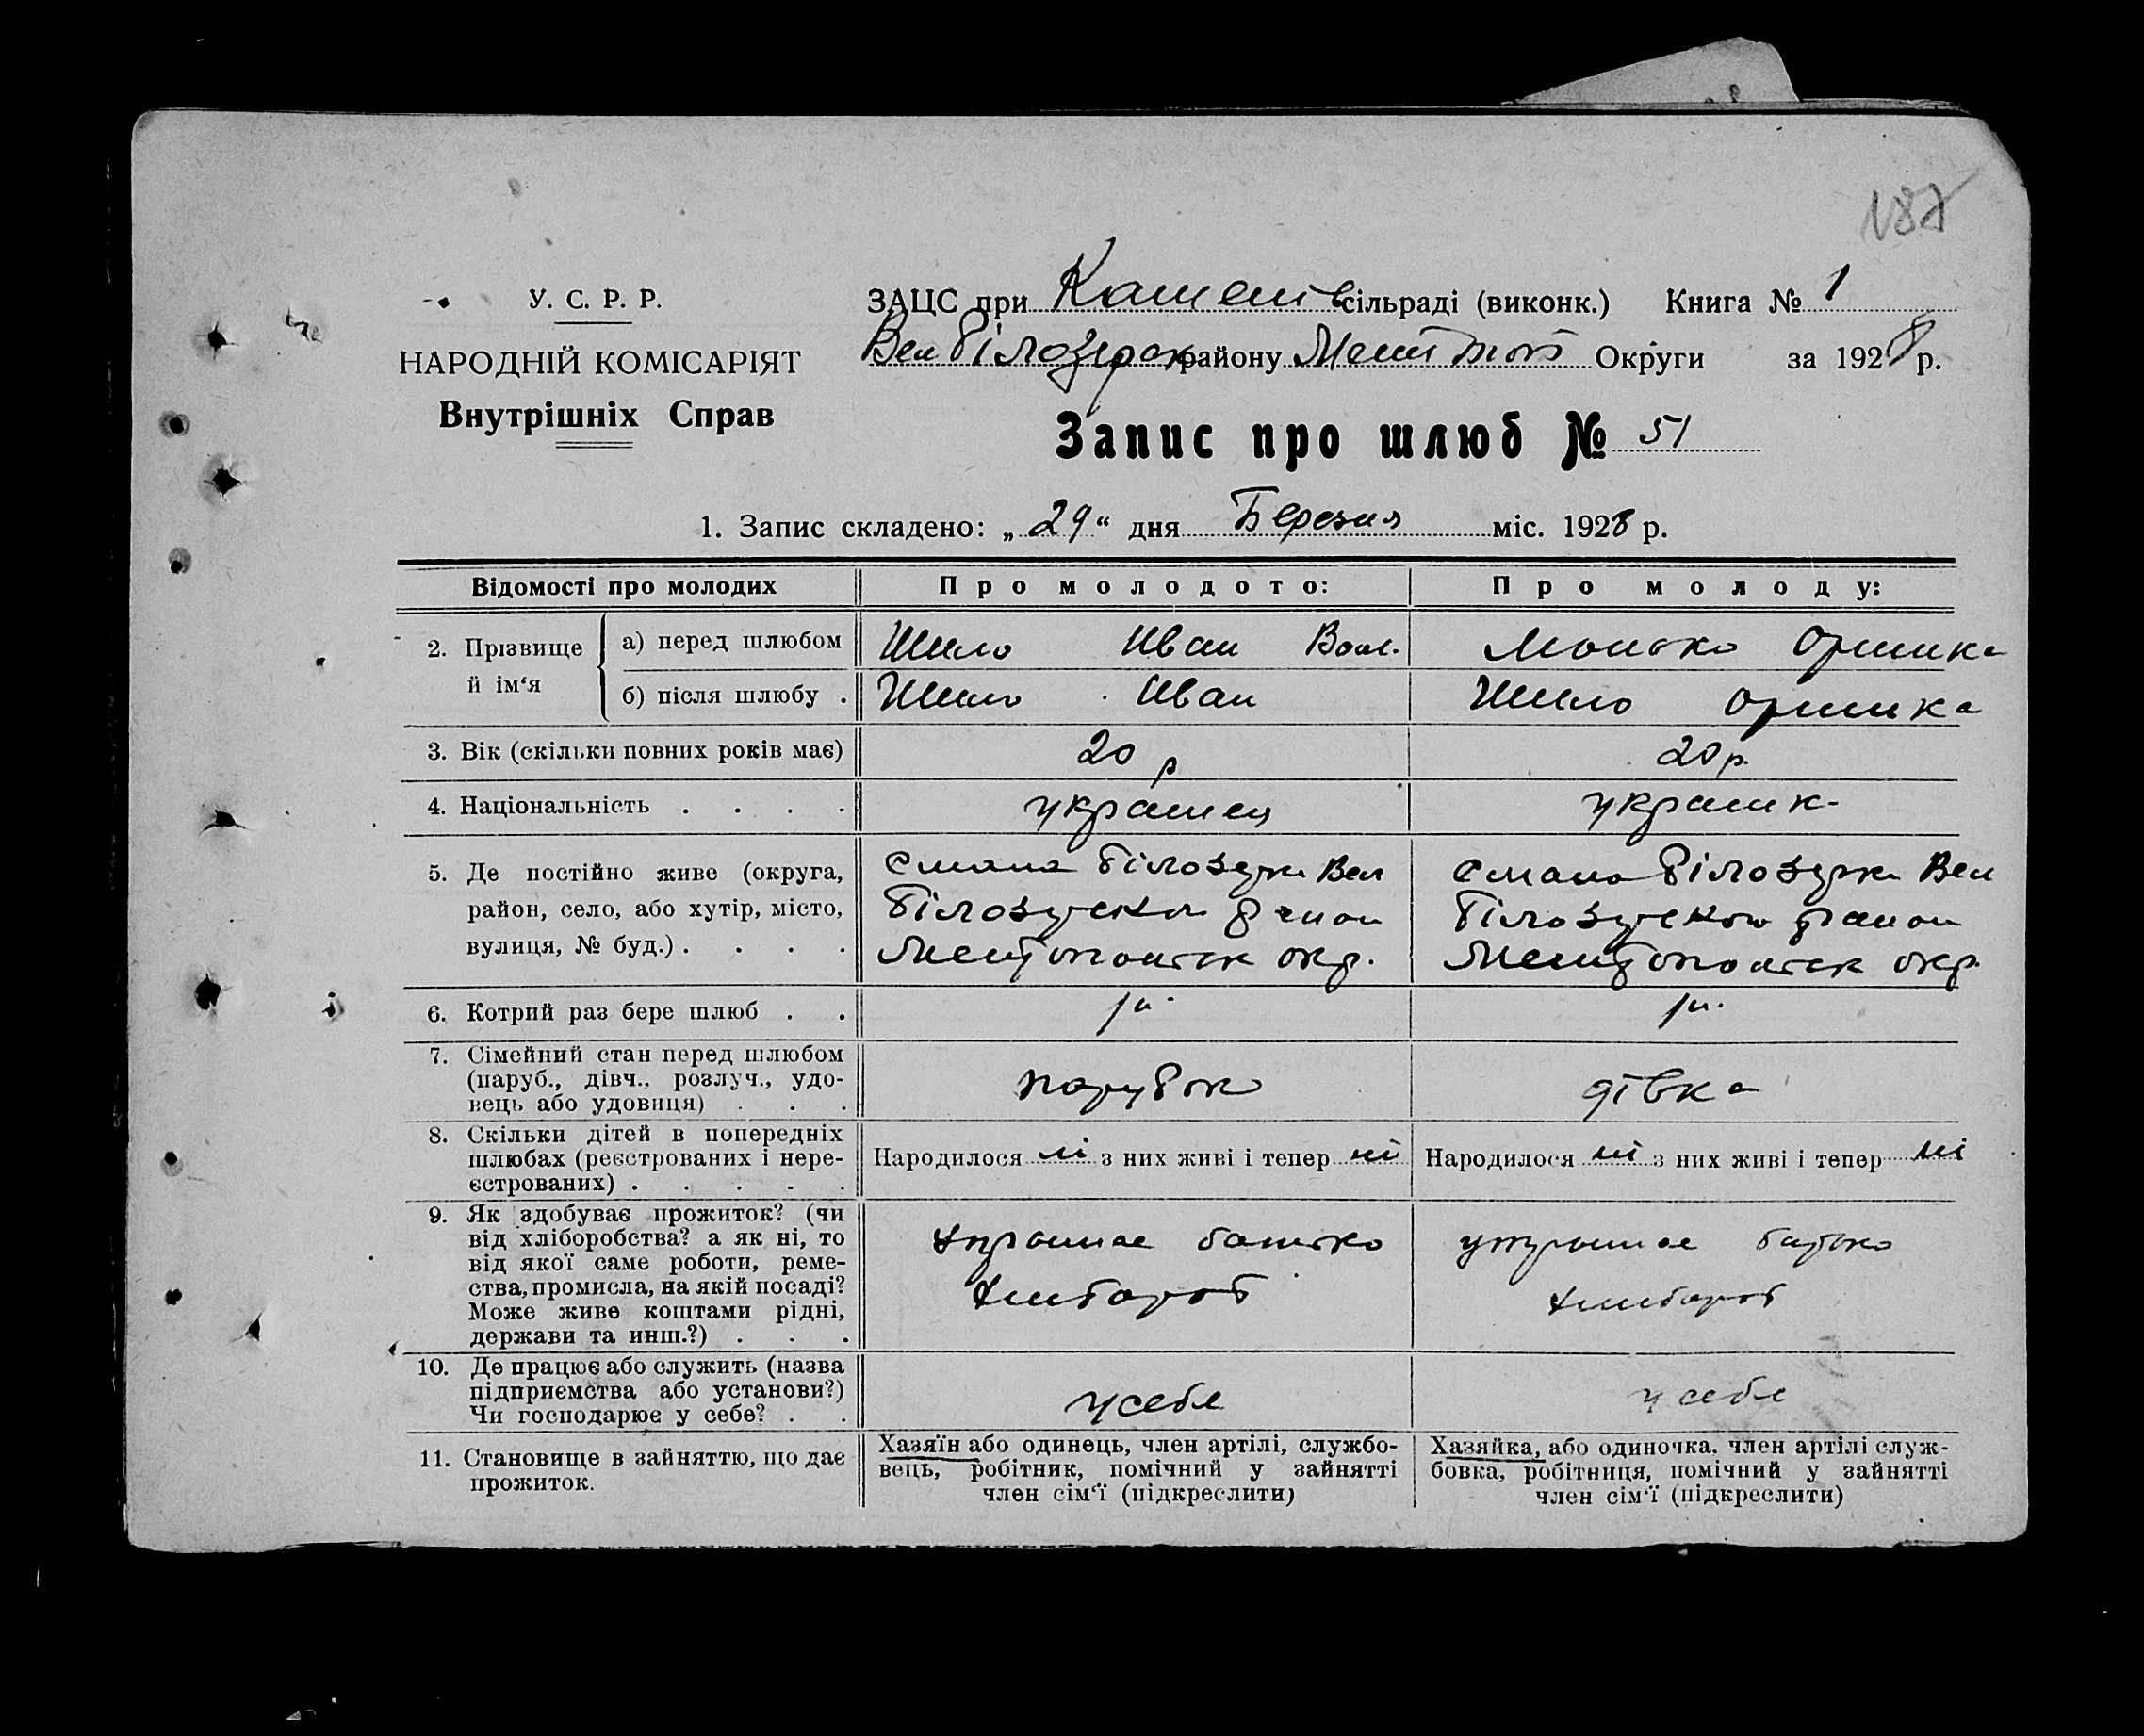 187
У. С. Р. Р.
ЗАЦС при сільраді (виконк.) Книга № 1
НАРОДНІЙ КОМІСАРІЯТ
Вел Білозерск району Меліт Округи за 1928 р.
Внутрішніх Справ
Запис про шлюб № 51
1. Запис складено: „29“ дня Березня міс. 1928 р.
Відомості про молодих
Про молодого:
Про молоду:
2. Прізвище й ім‘я
а) перед шлюбом
Шило Иван
Оришка
б) після шлюбу .
Шило Иван
Шило Оришка
3. Вік (скільки повних років має)
20 р
20 р.
4. Національність . . . .
украинец
украинк-
5. Де постійно живе (округа,
район, село, або хутір, місто,
вулиця, № буд.) . . . .
Білозерки Вел
Білозерского район
окр.
Білозерки Вел
Білозерского район
окр.
6. Котрий раз бере шлюб . .
7. Сімейний стан перед шлюбом
(паруб., дівч., розлуч., удо-
вець або удовиця) . . .
парубок
дівка
8. Скільки дітей в попередніх
шлюбах (реєстрованих і нере-
єстрованих) . . . . .
Народилося ні з них живі і тепер ні
Народилося ні з них живі і тепер ні
9. Як здобуває прожиток? (чи
від хліборобства? а як ні, то
від якої саме роботи, реме-
ства, промисла, на якій посаді?
Може живе коштами рідні,
держави та инш.?) . . .
батько
хлібороб
батько
хлібороб
10. Де працює або служить (назва
підприємства або установи?)
Чи господарює у себе? . .
у себе
у себе
11. Становище в зайняттю, що дає
прожиток.
Хазяїн або одинець, член артілі, службо-
вець, робітник, помічний у зайнятті
член сім‘ї (підкреслити)
Хазяйка, або одиночка, член артілі служ-
бовка, робітниця, помічний у зайнятті
член сім‘ї (підкреслити)